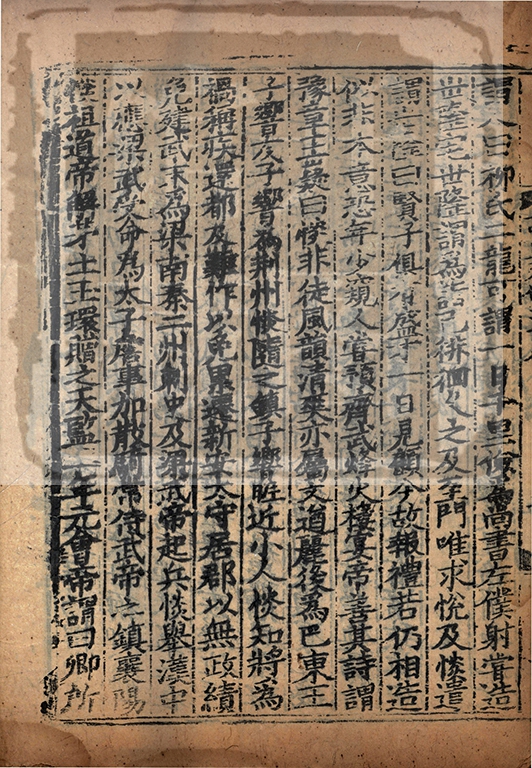 謂人曰柳氏二龍可謂一日千里儉為尚書左僕射嘗造
世隆宅世隆謂為詣己徘徊久之及至門唯求悅及惔遣
謂世隆曰賢子俱有盛才一日見顧今故報禮若仍相造
似非本意恐年少窺人嘗預齊武烽火樓宴帝善其詩謂
豫章王嶷曰惔非徒風韻清爽亦屬文遒麗後為巴東王
子響友子響為荊州惔隨之鎮子響昵近小人惔知將為
禍稱疾還都及難作以免累遷新安太守居郡以無政績
免建武末為梁南秦二州刺史及梁武帝起兵惔舉漢中
以應梁武受命為太子詹事加散騎常侍武帝之鎮襄陽
惔祖道帝解茅土玉環贈之天監二年元會帝謂曰卿所